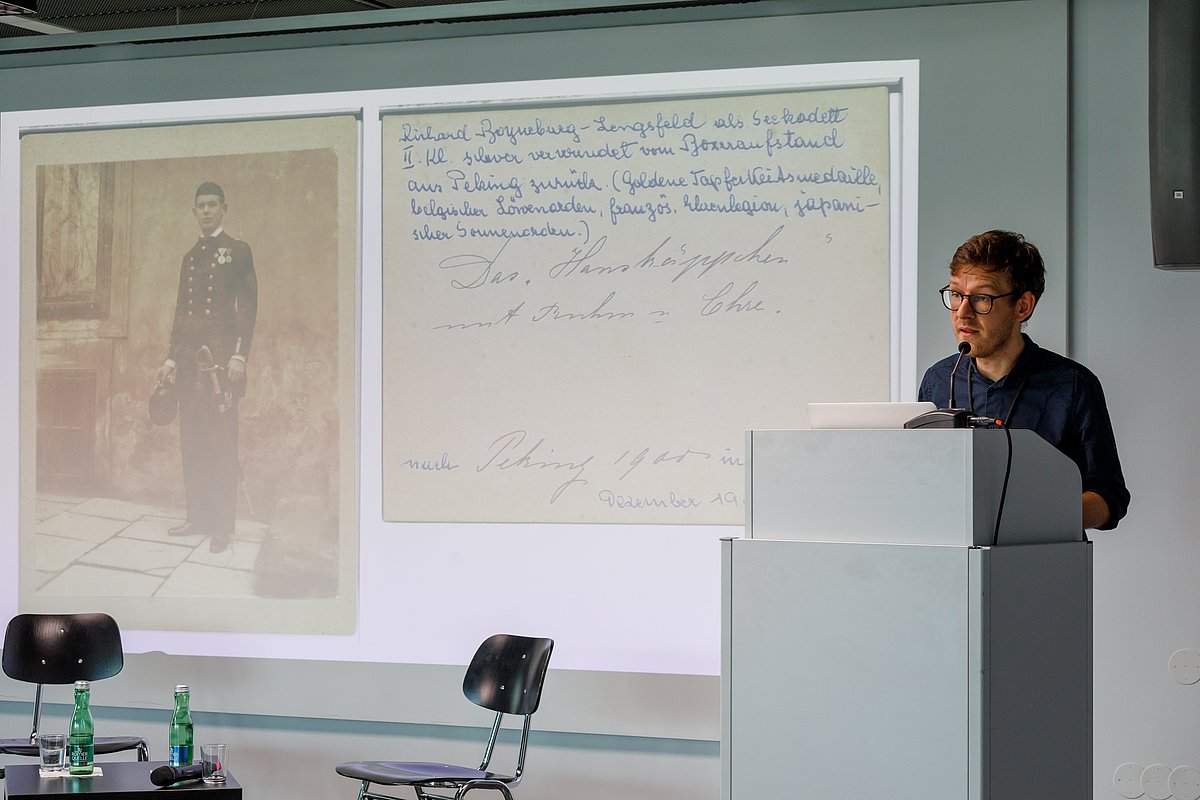 Richard Boyneburg-Lengsfeld als Seekadett
II. Kl. schwer verwundet vom Boxeraufstand
aus Peking zurück. (Goldene Tapferkeitsmedaille,
belgischer Löwenorden, französ. Ehrenlegion, japani-
scher Sonnenorden.)
Das „Hanskäppchen“
mit Ruhm u. Ehre.
nach Peking 1900 in
Dezember 19